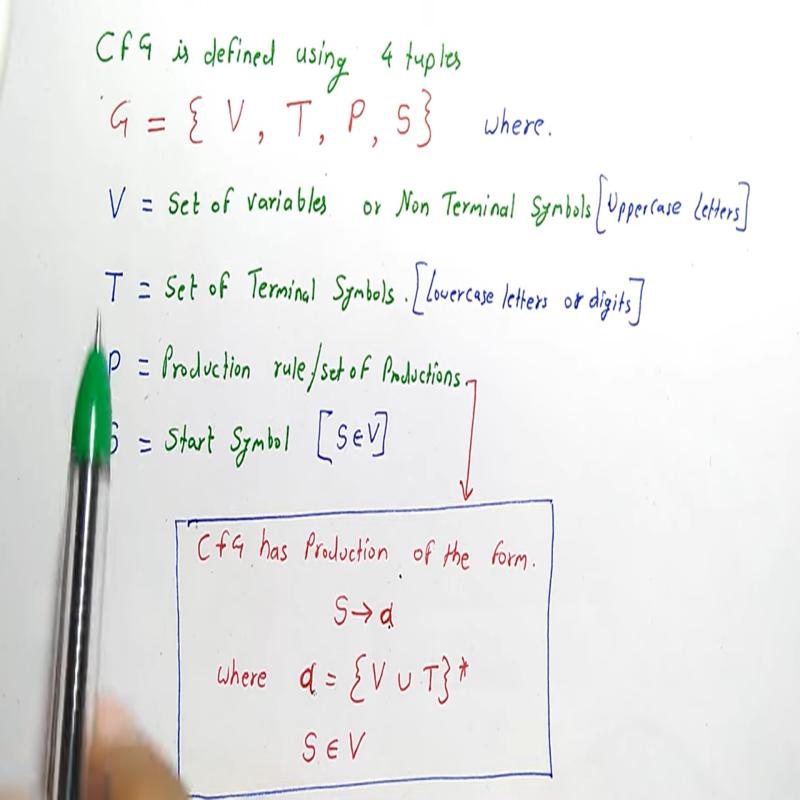 CFG is defined using 4 tuples
G = { V, T, P, S} where.
V = Set of variables or Non Terminal Symbols [Uppercase letters]
T = Set of Terminal Symbols. [Lowercase letters or digits]
P = Production rule/set of Productions
S = Start Symbol [S∈V]
CFG has Production of the form.
S → α
where α = {V ∪ T}*
S ∈ V